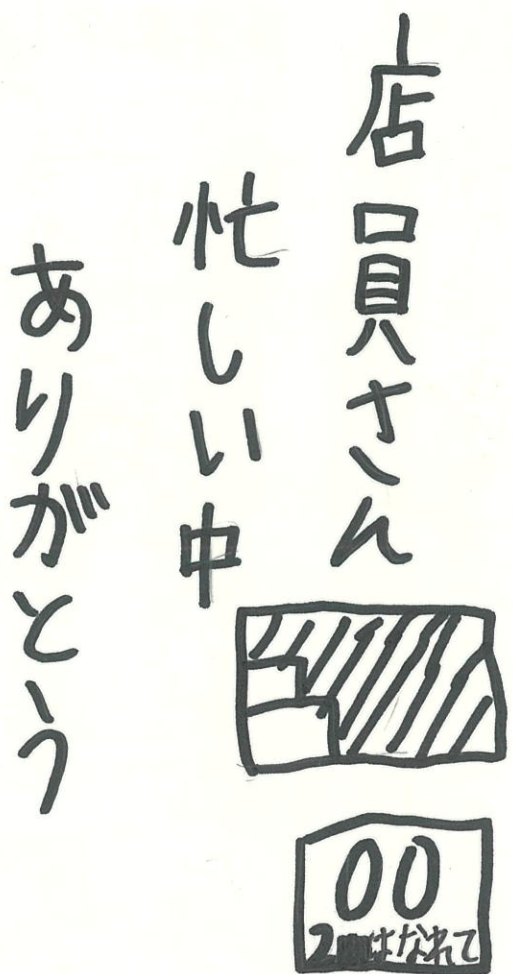 店員さん
忙しい中
ありがとう
00
2 はなれて